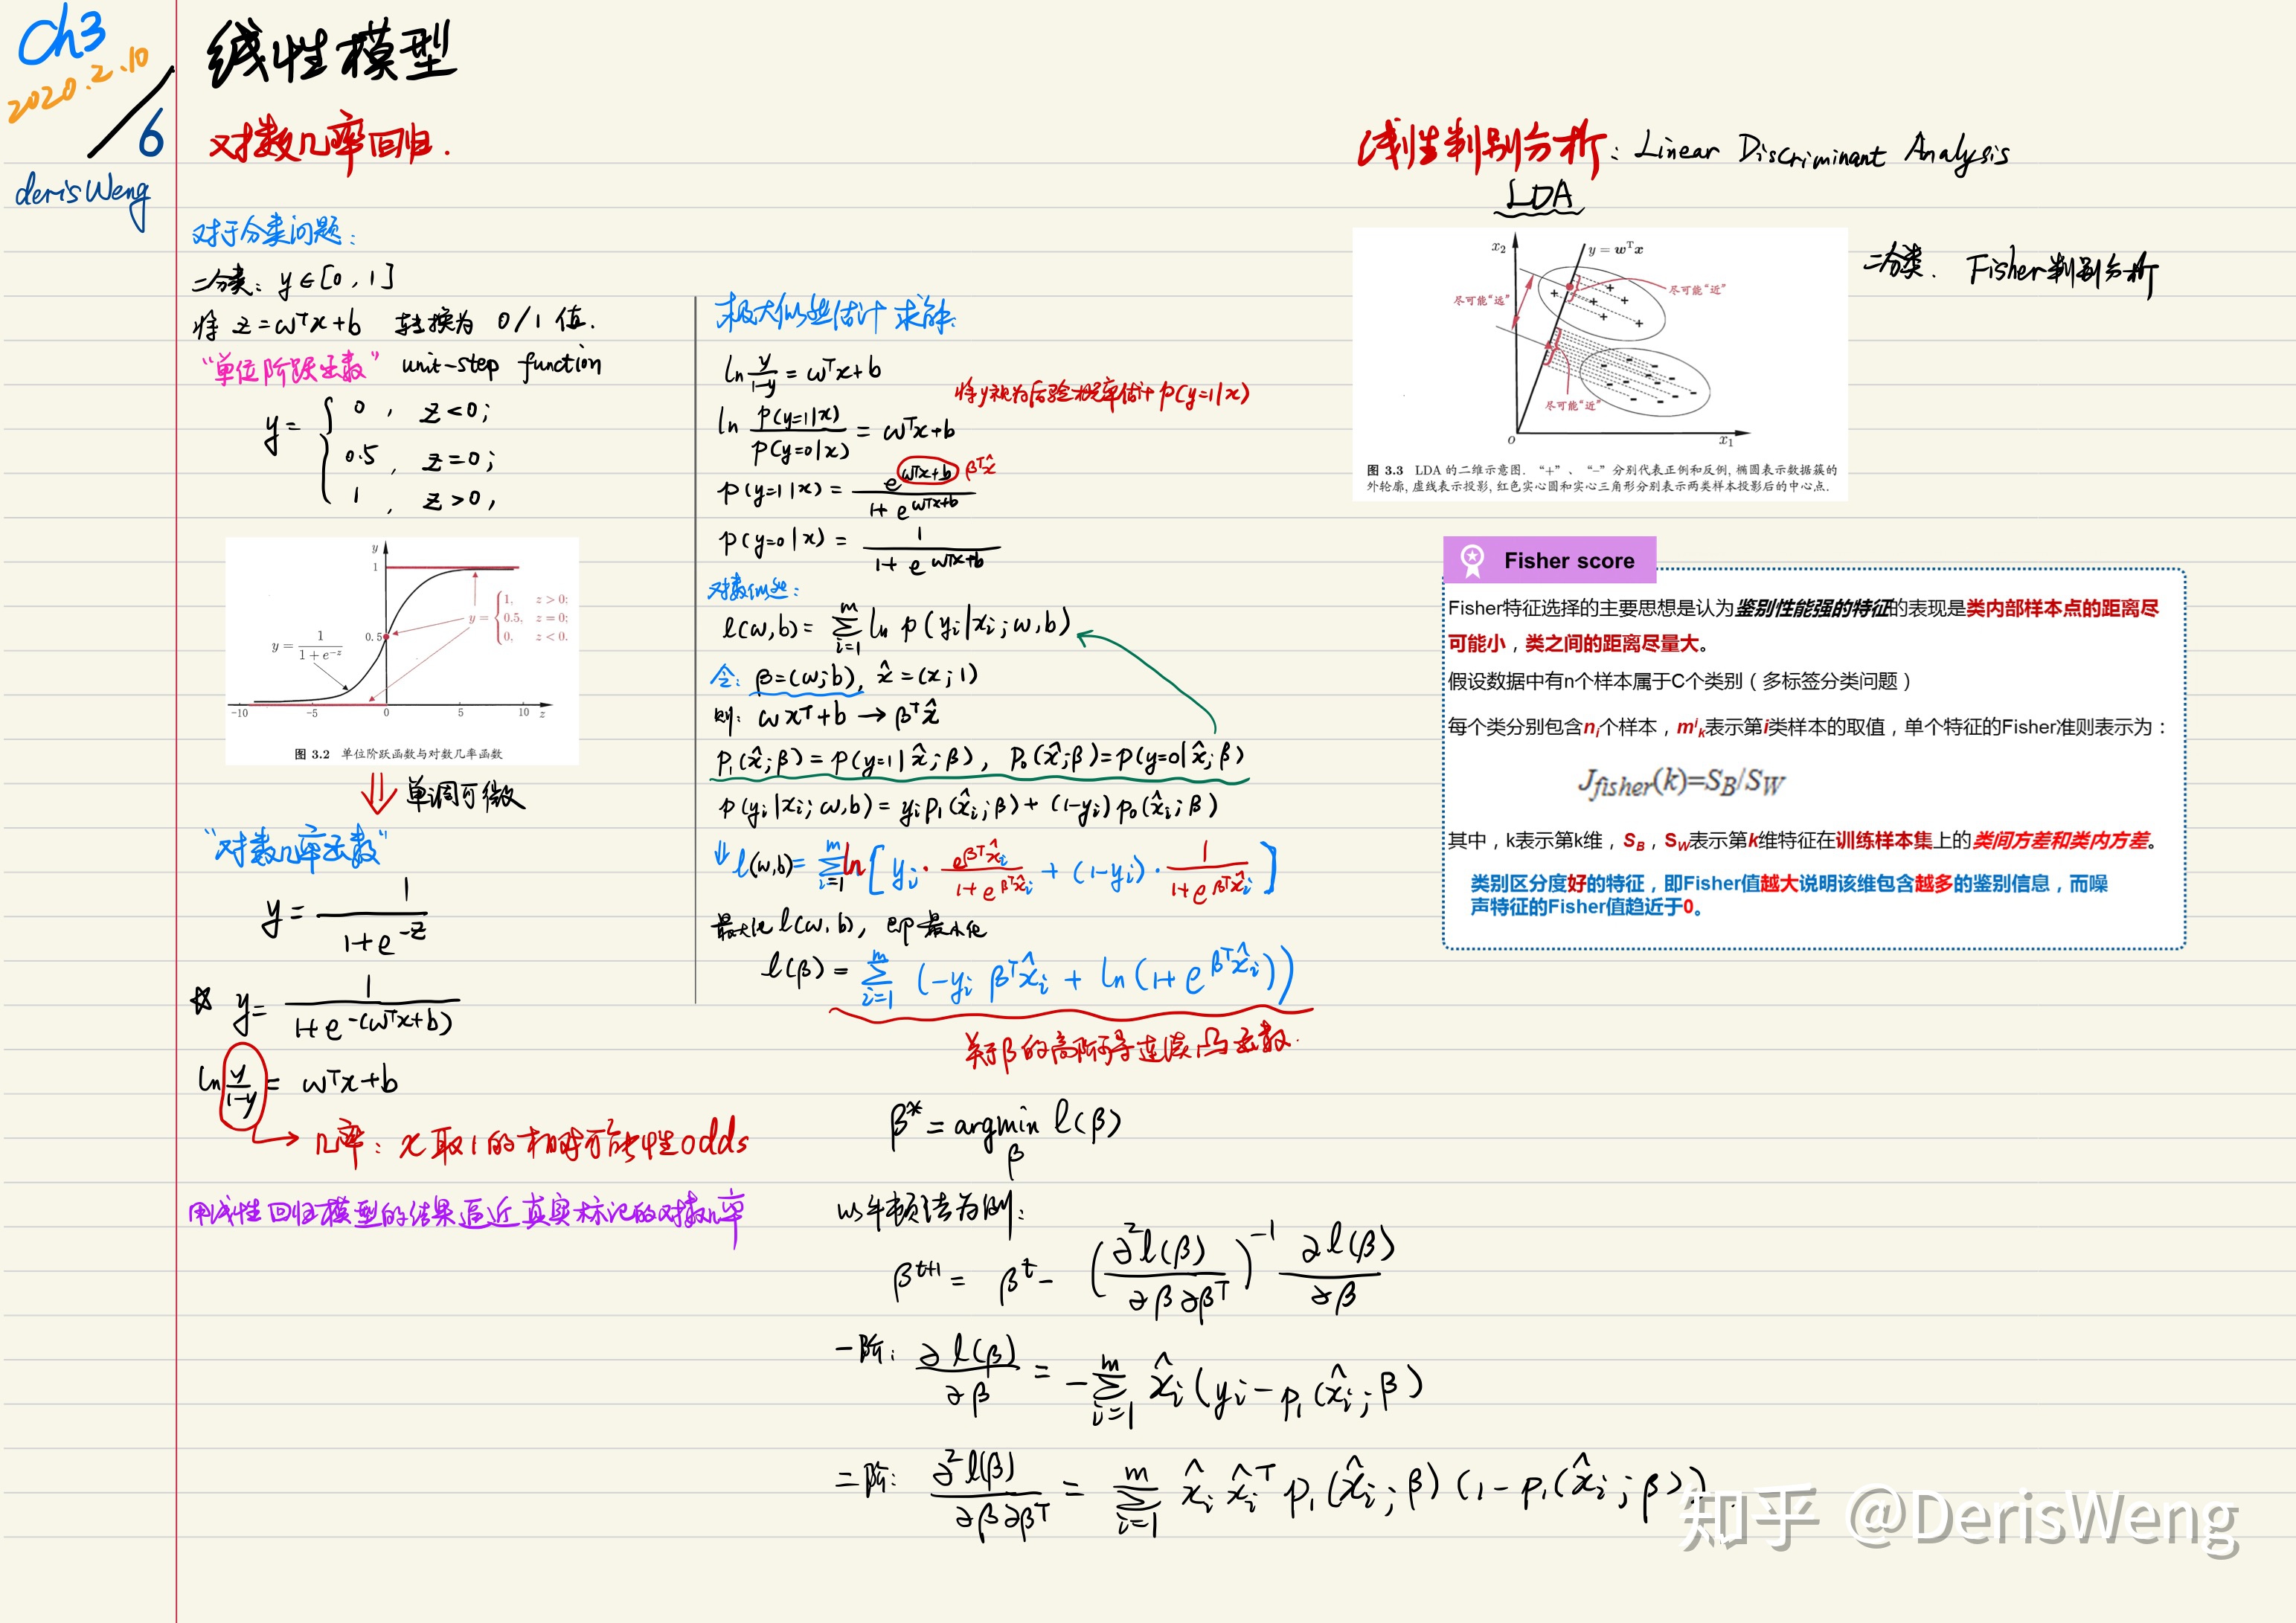 Ch3
2020.2.10
/6
derisWeng
线性模型
对数几率回归.
对于分类问题:
二分类: y∈[0,1]
将 z=ωᵀx+b 转换为 0/1 值.
“单位阶跃函数” unit-step function
y= { 0, z<0;
0.5, z=0;
1, z>0,
y
1
0.5
y = 1/(1+e^{-z})
y = { 1, z>0;
0.5, z=0;
0, z<0.
-10 -5 0 5 10 z
图 3.2 单位阶跃函数与对数几率函数
⇓ 单调可微
“对数几率函数”
y = 1/(1+e^{-z})
☆ y = 1/(1+e^{-(ωᵀx+b)})
ln y/(1-y) = ωᵀx+b
→ 几率: x取1的相对可能性odds
用线性回归模型的结果逼近真实标记的对数几率
极大似然估计 求解:
ln y/(1-y) = ωᵀx+b
将y视为后验概率估计 p(y=1|x)
ln p(y=1|x)/p(y=0|x) = ωᵀx+b
p(y=1|x) = e^{ωᵀx+b}/(1+e^{ωᵀx+b}) βᵀx̂
p(y=0|x) = 1/(1+e^{ωᵀx+b})
对数似然:
ℓ(ω,b) = ∑_{i=1}^{m} ln p(yᵢ|xᵢ;ω,b)
令: β=(ω;b), x̂=(x;1)
则: ωxᵀ+b → βᵀx̂
p₁(x̂;β)=p(y=1|x̂;β), p₀(x̂;β)=p(y=0|x̂;β)
p(yᵢ|xᵢ;ω,b) = yᵢp₁(x̂ᵢ;β)+(1-yᵢ)p₀(x̂ᵢ;β)
↓ ℓ(ω,b) = ∑_{i=1}^{m} ln[yᵢ·e^{βᵀx̂ᵢ}/(1+e^{βᵀx̂ᵢ}) + (1-yᵢ)·1/(1+e^{βᵀx̂ᵢ})]
最大化ℓ(ω,b), 即最小化
ℓ(β) = ∑_{i=1}^{m} (-yᵢβᵀx̂ᵢ + ln(1+e^{βᵀx̂ᵢ}))
关于β的高阶可导连续凸函数.
β* = argmin_β ℓ(β)
以牛顿法为例:
β^{t+1} = β^t - (∂²ℓ(β)/∂β∂βᵀ)^{-1} ∂ℓ(β)/∂β
一阶: ∂ℓ(β)/∂β = -∑_{i=1}^{m} x̂ᵢ(yᵢ-p₁(x̂ᵢ;β)
二阶: ∂²ℓ(β)/∂β∂βᵀ = ∑_{i=1}^{m} x̂ᵢx̂ᵢᵀp₁(x̂ᵢ;β)(1-p₁(x̂ᵢ;β))
线性判别分析: Linear Discriminant Analysis
LDA
x₂
y = wᵀx
尽可能“远”
尽可能“近”
尽可能“近”
O
x₁
图 3.3 LDA 的二维示意图. “+”、“-”分别代表正例和反例, 椭圆表示数据簇的
外轮廓, 虚线表示投影, 红色实心圆和实心三角形分别表示两类样本投影后的中心点.
二分类. Fisher判别分析
Fisher score
Fisher特征选择的主要思想是认为鉴别性能强的特征的表现是类内部样本点的距离尽
可能小，类之间的距离尽量大。
假设数据中有n个样本属于C个类别（多标签分类问题）
每个类分别包含nᵢ个样本，mⁱₖ表示第i类样本的取值，单个特征的Fisher准则表示为：
J_{fisher}(k)=S_B/S_W
其中，k表示第k维，S_B，S_W表示第k维特征在训练样本集上的类间方差和类内方差。
类别区分度好的特征，即Fisher值越大说明该维包含越多的鉴别信息，而噪
声特征的Fisher值趋近于0。
知乎 @DerisWeng